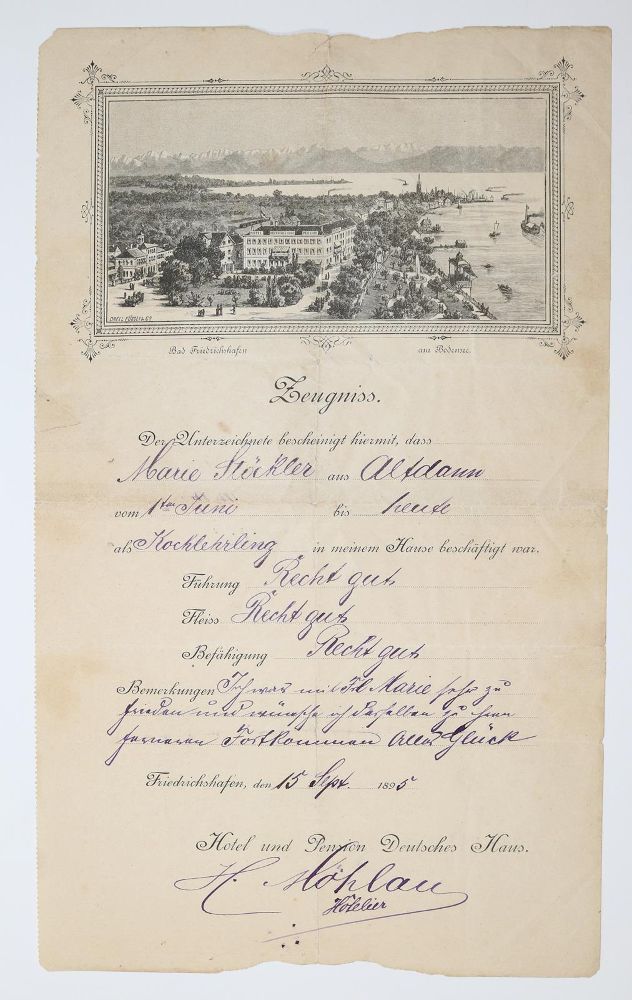 OREL FÜSSLI & Co
Bad Friedrichshafen am Bodensee.
Zeugniss.
Der Unterzeichnete bescheinigt hiermit, dass
Marie Stöckler aus Altdann
vom 1ten Juni bis heute
als Kochlehrling in meinem Hause beschäftigt war.
Führung Recht gut
Fleiss Recht gut
Befähigung Recht gut
Bemerkungen Ich war mit Frl. Marie sehr zu
frieden und wünsche ich derselben zu ihrem
ferneren Fortkommen Alles Glück
Friedrichshafen, den 15 Sept. 1895
Hotel und Pension Deutsches Haus.
H. Möhlau
Hôtelier